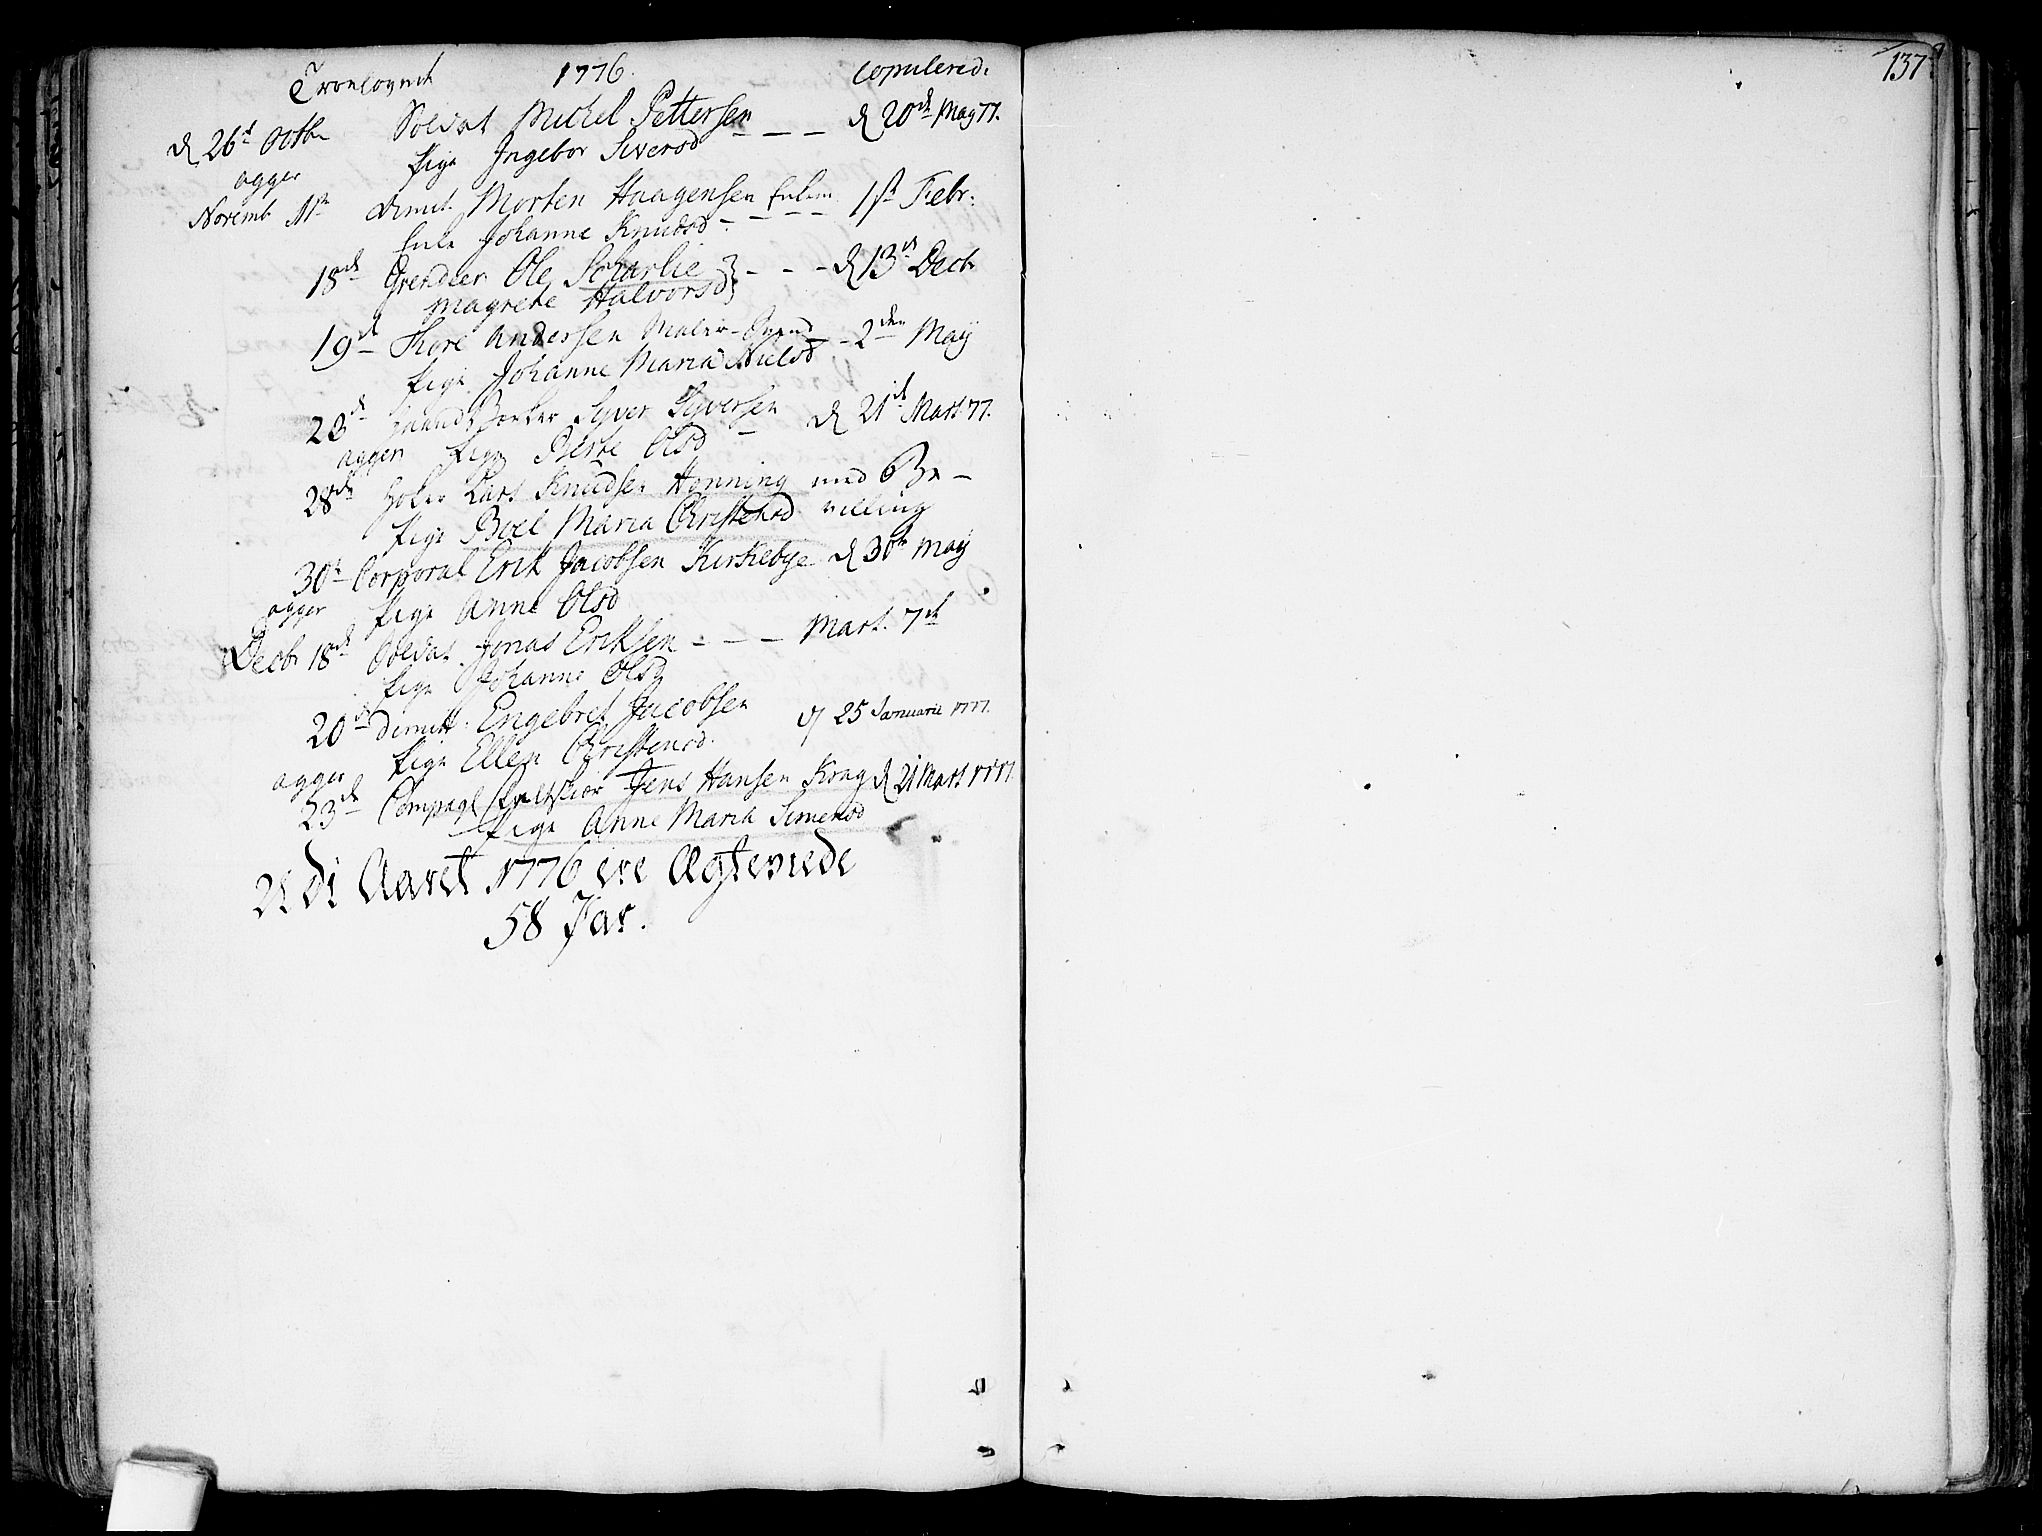 Troelovede 1776. Copulered.
d 26d Octbr Soldat Michel Pettersen - - - d 20de May 77.
agger Pige Ingebor Siversd
Novemb 11te Dimit. Morten Haagensen Enkem. 1ste Febr.
Enke Johanne Knudsd - - - -
18de Grendeer Ole Scharlie - - - d 13d Decb
Magrete Halvorsd
19d Thore Andersen Maler-Svend - 2den May
Pige Johanne Maria Nielsd
23d Haandværker Syver Syversen d 21de Mart 77.
aggen Pige Berte Olsd
28de Høker Lars Knudsen Hønning med Be-
Pige Boel Maria Christensd villing
30te Corporal Erik Jacobsen Kirkebye d 30te May
agger Pige Anne Olsd
Decb 18de Soldat Jonas Eriksen - - - Mart. 7de
Pige Johanne Olsd
20d Dimitt. Engebret Jacobsen d 25 Januarii 1777.
agger Pige Ellen Christensd.
23de Compagl Jens Hansen Krag d 21 Mart 1777
Pige Anne Maria Simensd
Udi Aaret 1776 ere Ægteviede
58 Par.
137